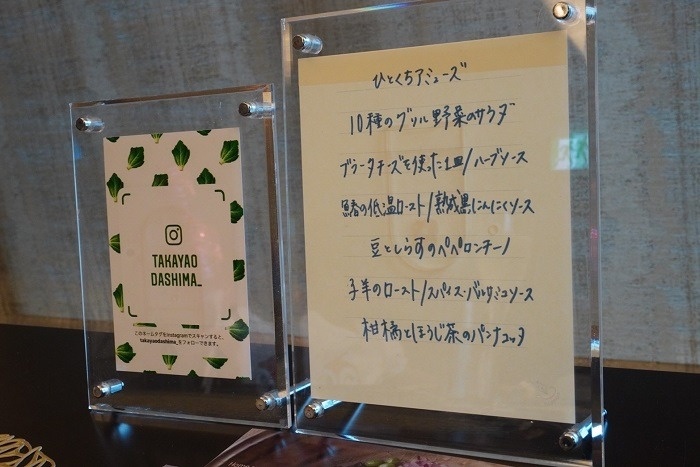 TAKAYAO
DASHIMA_
このネームタグをInstagramでスキャンすると、
takayaodashima_をフォローできます。
ひとくちアミューズ
10種のグリル野菜のサラダ
ブラータチーズを使った1皿/ハーブソース
鰆の低温ロースト/熟成黒にんにくソース
豆としらすのペペロンチーノ
子羊のロースト/スパイス・バルサミコソース
柑橘とほうじ茶のパンナコッタ